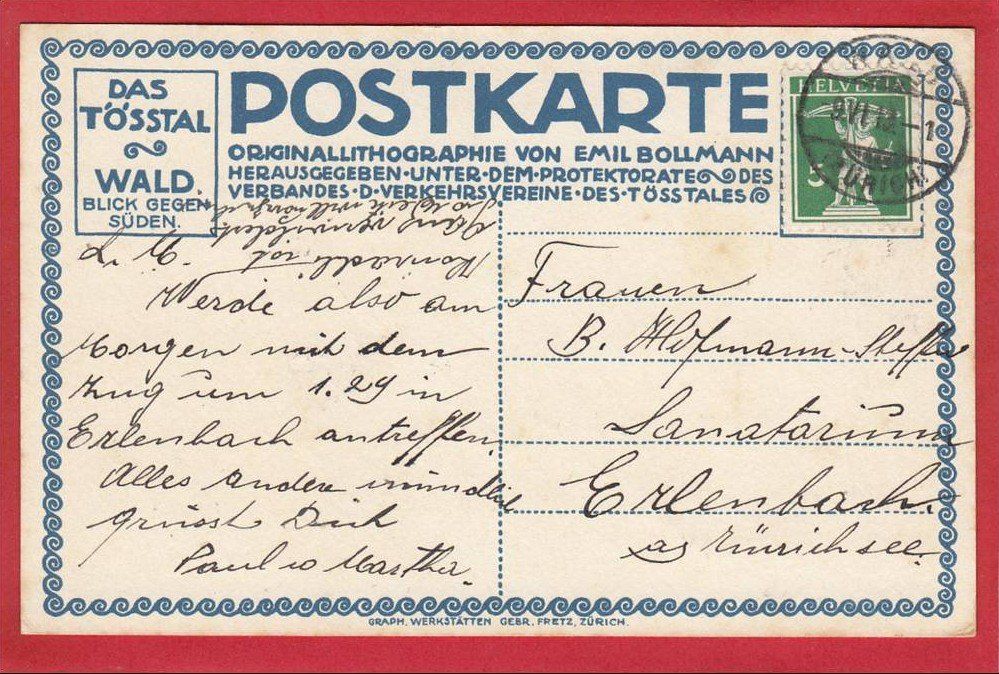 DAS
TÖSSTAL
WALD.
BLICK GEGEN
SÜDEN.
POSTKARTE
ORIGINALLITHOGRAPHIE VON EMIL BOLLMANN
HERAUSGEGEBEN·UNTER·DEM·PROTEKTORATE DES
VERBANDES·D·VERKEHRSVEREINE·DES·TÖSSTALES
HELVETIA
5
ZÜRICH
L. M.
Werde also am
Morgen mit dem
Zug um 1.29 in
Erlenbach antreffen
Alles andere mündlich
grüsst Dich
Paul u Martha.
Frauen
B. Hofmann-
Sanatorium
Erlenbach.
a/ Zürichsee.
GRAPH. WERKSTÄTTEN GEBR. FRETZ, ZÜRICH.